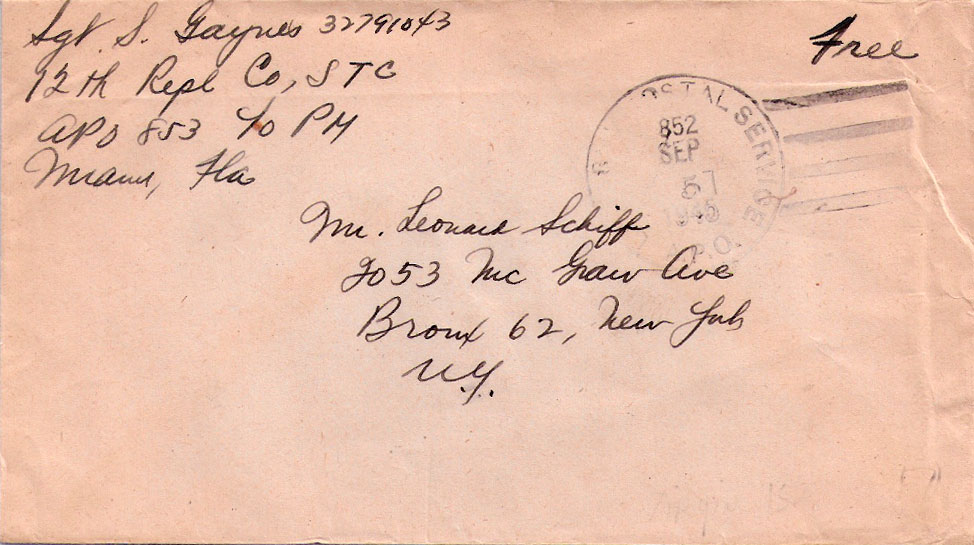 Sgt. S. Gaynes 32791043
Free
12th Repl Co, STC
APO 853 c/o PM
Miami, Fla
POSTAL SERVICE
852
SEP
5
1945
A.P.O.
Mr. Leonard Schiff
2053 Mc Graw Ave
Bronx 62, New York
N.Y.